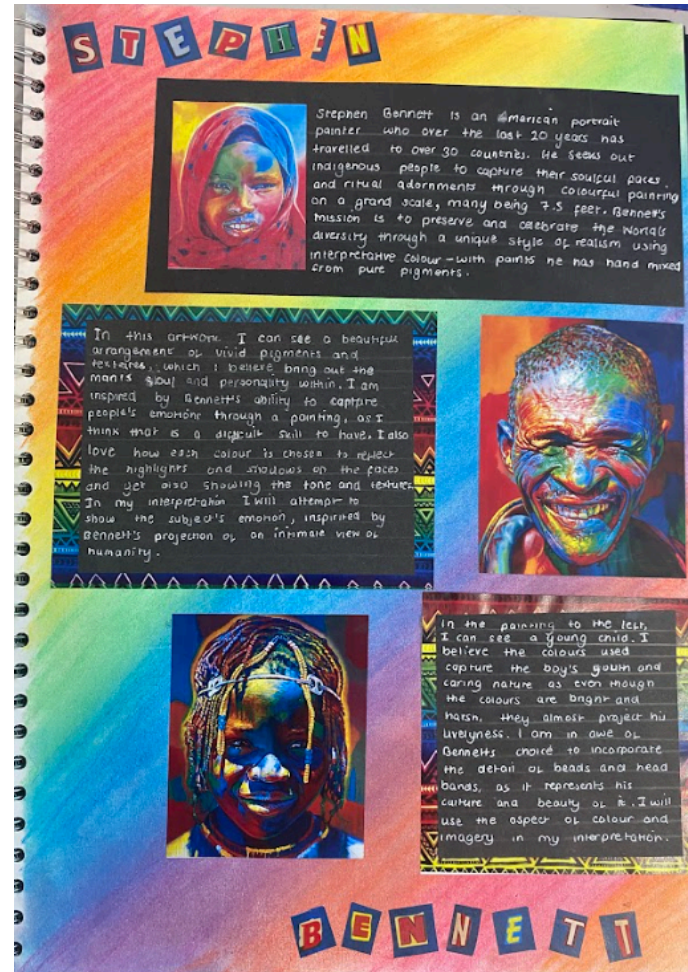 STEPHEN
Stephen Bennett is an American portrait
painter who over the last 20 years has
travelled to over 30 countries. He seeks out
indigenous people to capture their soulful faces
and ritual adornments through colourful painting
on a grand scale, many being 7.5 feet. Bennett's
mission is to preserve and celebrate the world's
diversity through a unique style of realism using
interpretative colour - with paints he has hand mixed
from pure pigments.
In this artwork I can see a beautiful
arrangement of vivid pigments and
textures, which I believe bring out the
man's soul and personality within. I am
inspired by Bennett's ability to capture
people's emotions through a painting, as I
think that is a difficult skill to have. I also
love how each colour is chosen to reflect
the highlights and shadows of the faces
and yet also showing the tone and texture.
In my interpretation I will attempt to
show the subject's emotion, inspirited by
Bennett's projection of an intimate view of
humanity.
In the painting to the left,
I can see a young child. I
believe the colours used
capture the boy's youth and
caring nature as even though
the colours are bright and
harsh, they almost project his
livelyness. I am in awe of
Bennetts choice to incorporate
the detail of beads and head
bands, as it represents his
culture and beauty of it. I will
use the aspect of colour and
imagery in my interpretation.
BENNETT